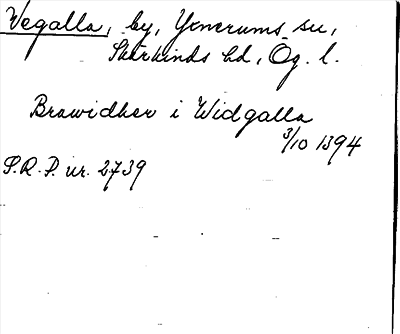 Vegalla, by, Yxnerums su,
Skärkinds hd, Ög. l.
Brawidher i Widgalla
3/10 1394
S.R.P. nr. 2739